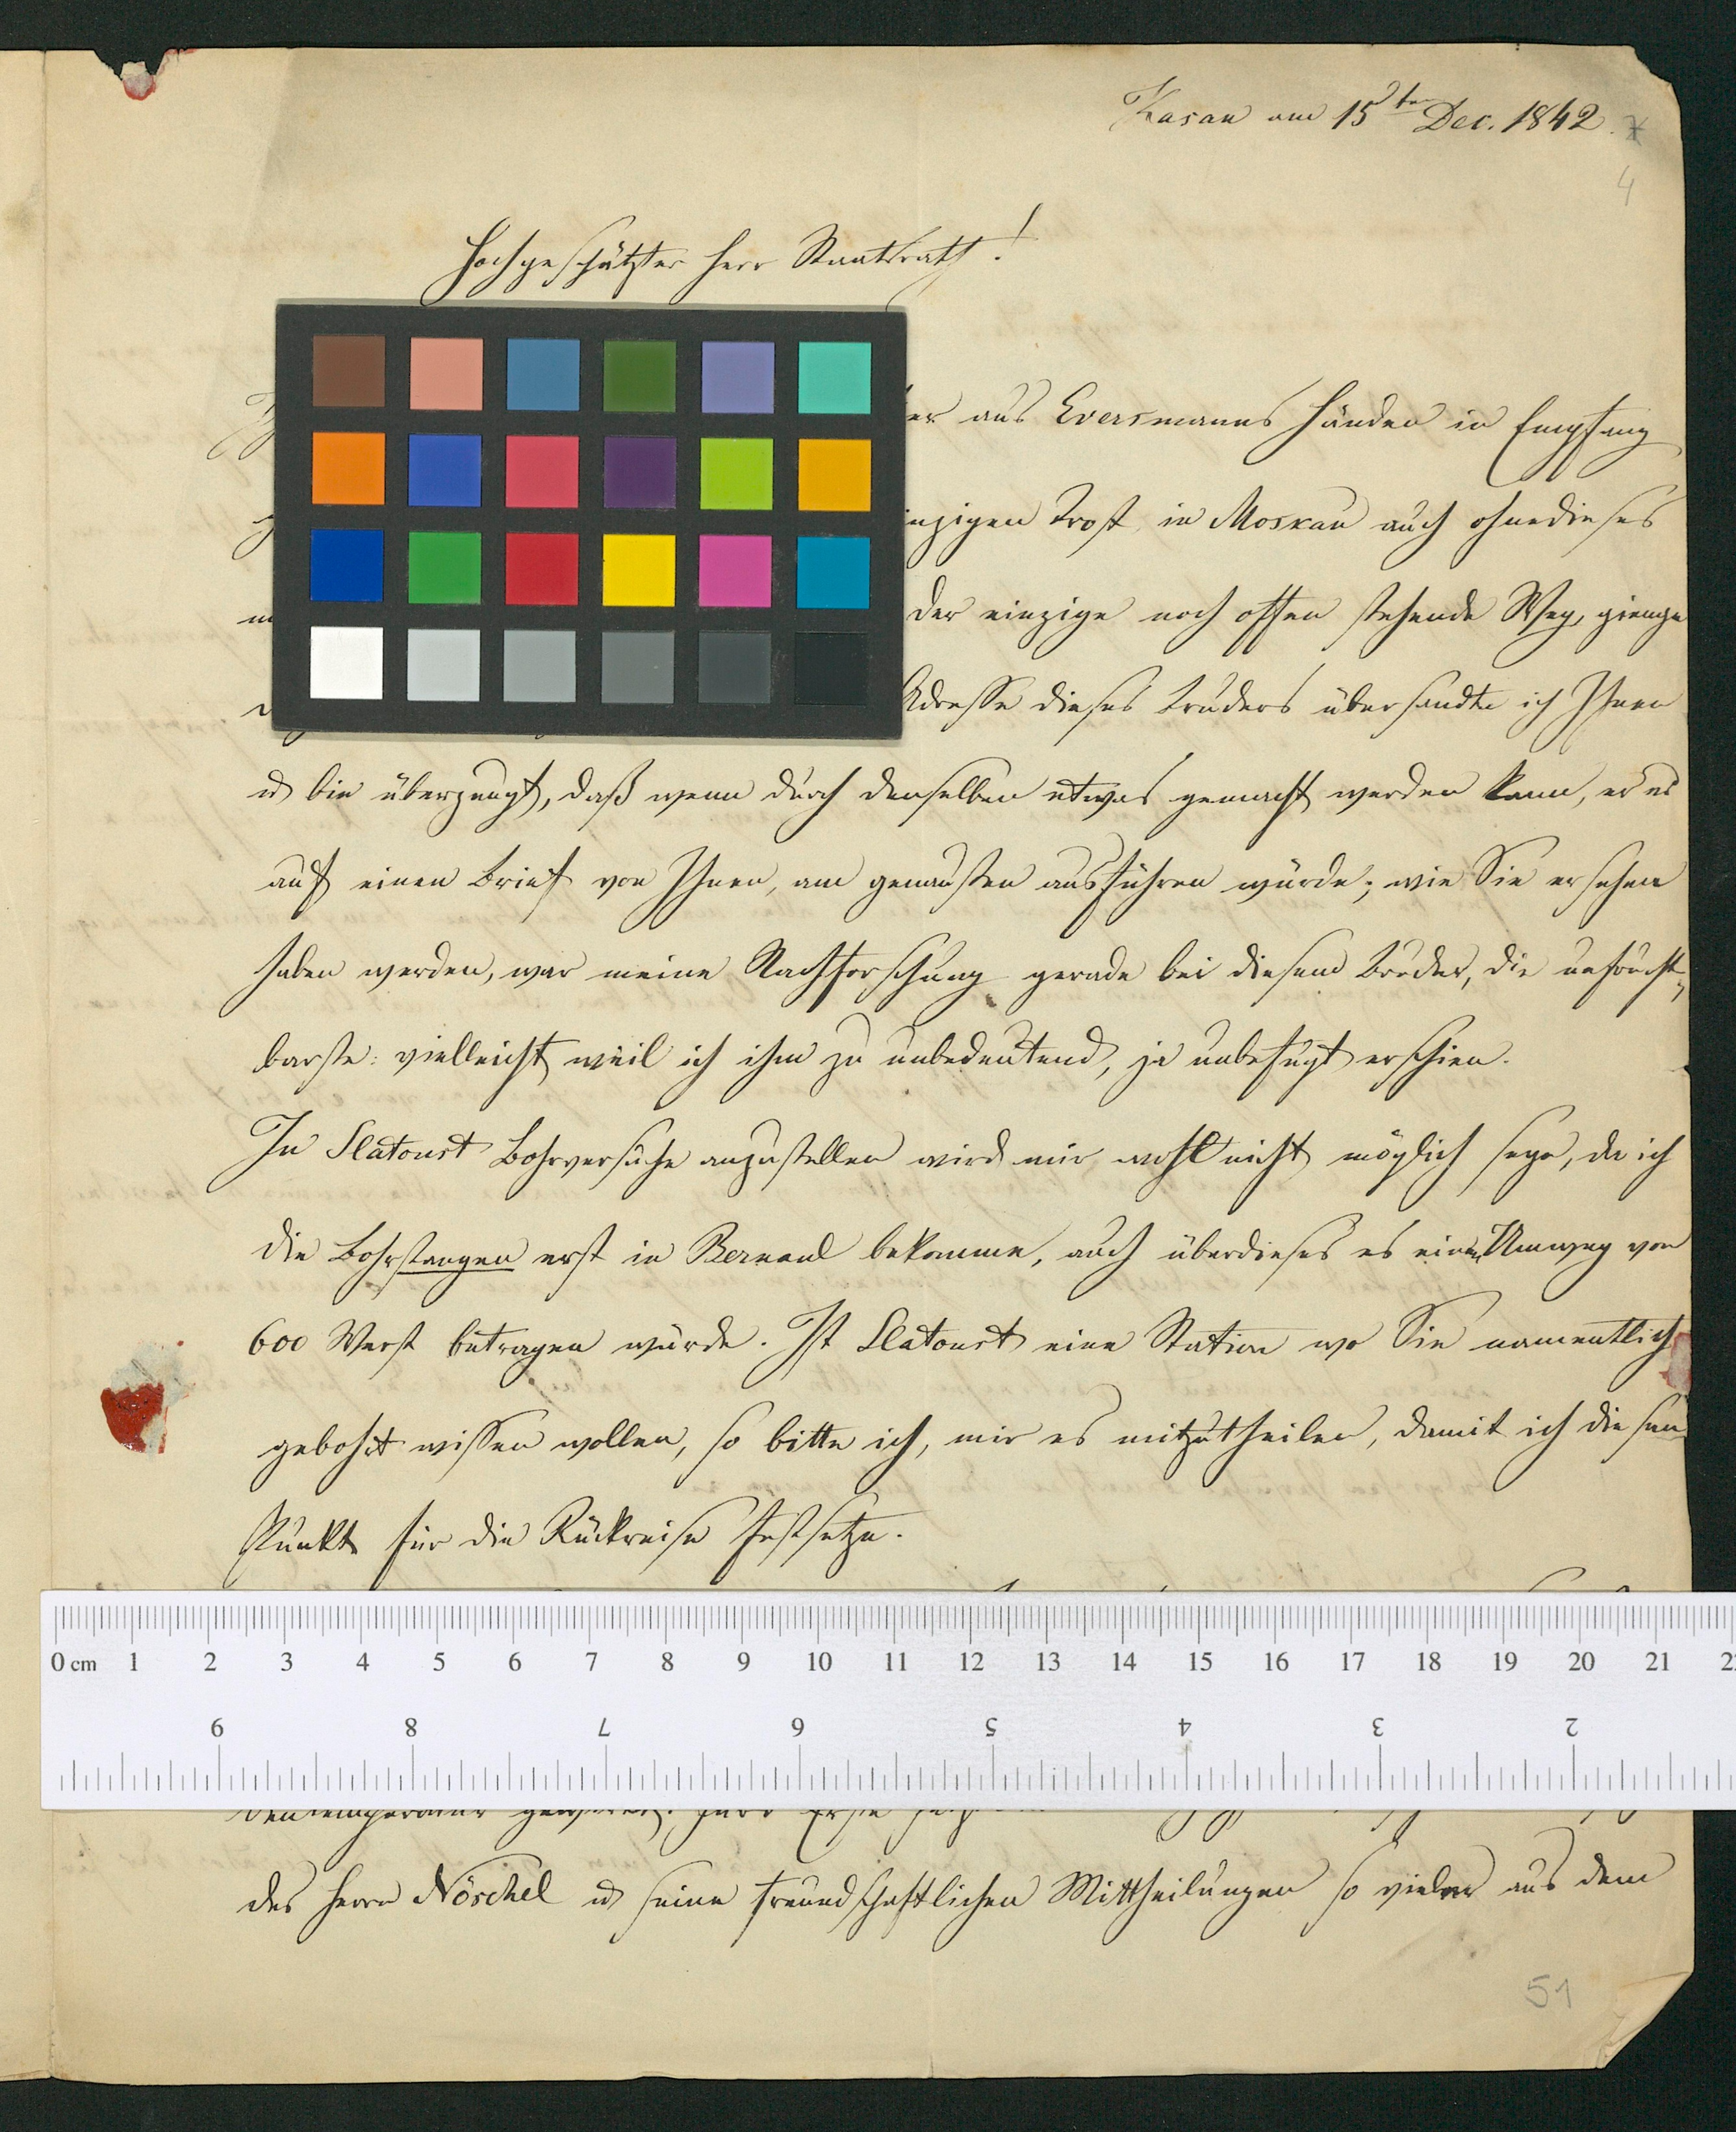 Kasan am 15ten Dec. 1842.
4
Hochgeschätzter Herr Staatsrath!
aus Eversmanns Händen in Empfang
nzigen Trost, in Moskau auch ohnedieses
der einzige noch offen stehende Weg, gienge
Adresse dieses Bruders übersandte ich Ihnen
u bin überzeugt, daß wenn durch denselben etwas gemacht werden kann, er es
auf einen Brief von Ihnen, am genausten ausführen würde; wie Sie ersehen
haben werden, war meine Nachforschung gerade bei diesem Bruder, die unfrucht-
barste: vielleicht weil ich ihm zu unbedeutend, ja unbefugt erschien.
In Slatoust Bohrversuche anzustellen wird mir wohl nicht möglich seyn, da ich
die Bohrstangen erst in Bernaul bekomme, auch überdieses es einen Umweg von
600 Werst betragen würde. Ist Slatoust eine Station wo Sie namentlich
gebohrt wissen wollen, so bitte ich, mir es mitzutheilen, damit ich diesen
Punkt für die Rückreise festsetze.
0 cm 1 2 3 4 5 6 7 8 9 10 11 12 13 14 15 16 17 18 19 20 21 2
9 8 7 6 5 4 3 2
dentemperatur
des Herrn Nöschel u seine freundschaftlichen Mittheilungen so vieler aus dem
51